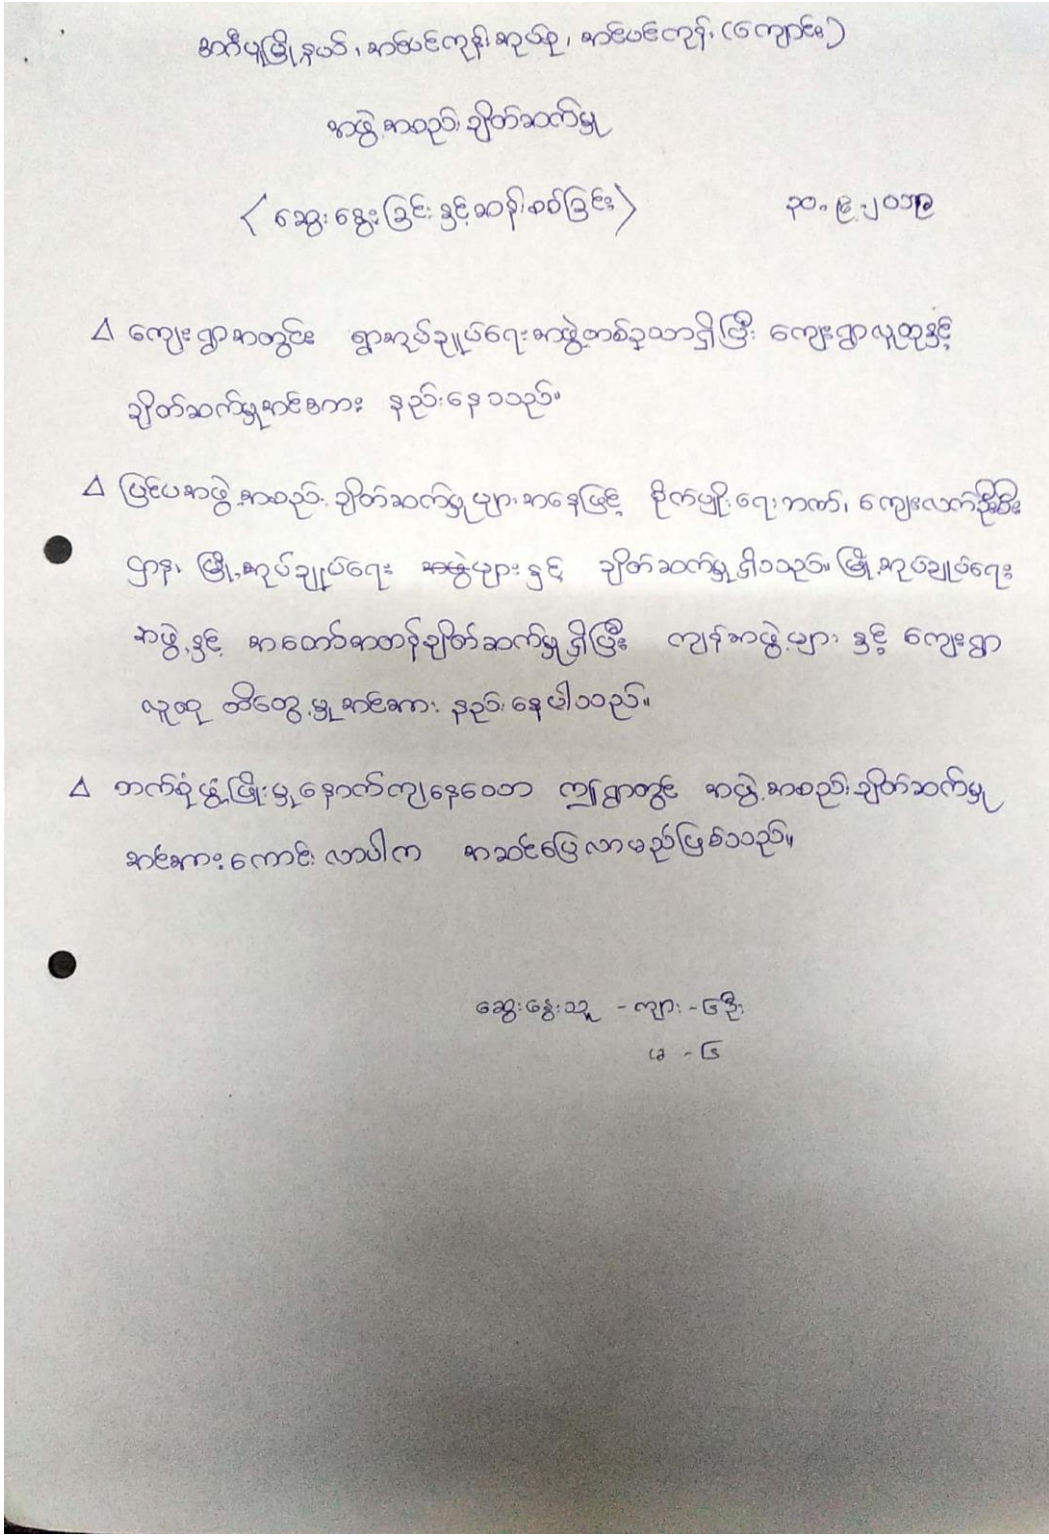 အင်းပင်ကုန်းအုပ်စု၊ အင်းပင်ကုန်း (ကျောင်း)
အဖွဲ့အစည်းချိတ်ဆက်မှု
〈 ဆွေးနွေးခြင်းနှင့်ဆန်းစစ်ခြင်း 〉 ၃၀.၉.၂၀၁၉
△ ကျေးရွာအတွင်း ရွာအုပ်ချုပ်ရေးအဖွဲ့တစ်ခုသာရှိပြီး ကျေးရွာလူထုနှင့်
ချိတ်ဆက်မှုအင်အား နည်းနေသည်။
△ ပြင်ပအဖွဲ့အစည်း ချိတ်ဆက်မှုများအနေဖြင့် စိုက်ပျိုးရေးဘဏ်၊ ကျေးလက်ဦးစီး
ဌာန၊ မြို့အုပ်ချုပ်ရေး အဖွဲ့များနှင့် ချိတ်ဆက်မှုရှိသည်။ မြို့အုပ်ချုပ်ရေး
အဖွဲ့နှင့် အတော်အတန်ချိတ်ဆက်မှုရှိပြီး ကျန်အဖွဲ့များ နှင့် ကျေးရွာ
လူထု ထိတွေ့မှုအင်အား နည်းနေပါသည်။
△ ဘက်စုံဖွံ့ဖြိုးမှုနောက်ကျနေသော ဤရွာတွင် အဖွဲ့အစည်းချိတ်ဆက်မှု
အင်အားကောင်းလာပါက အဆင်ပြေလာမည်ဖြစ်သည်။
ဆွေးနွေးသူ - ကျား - ၆ဦး
မ - ၆